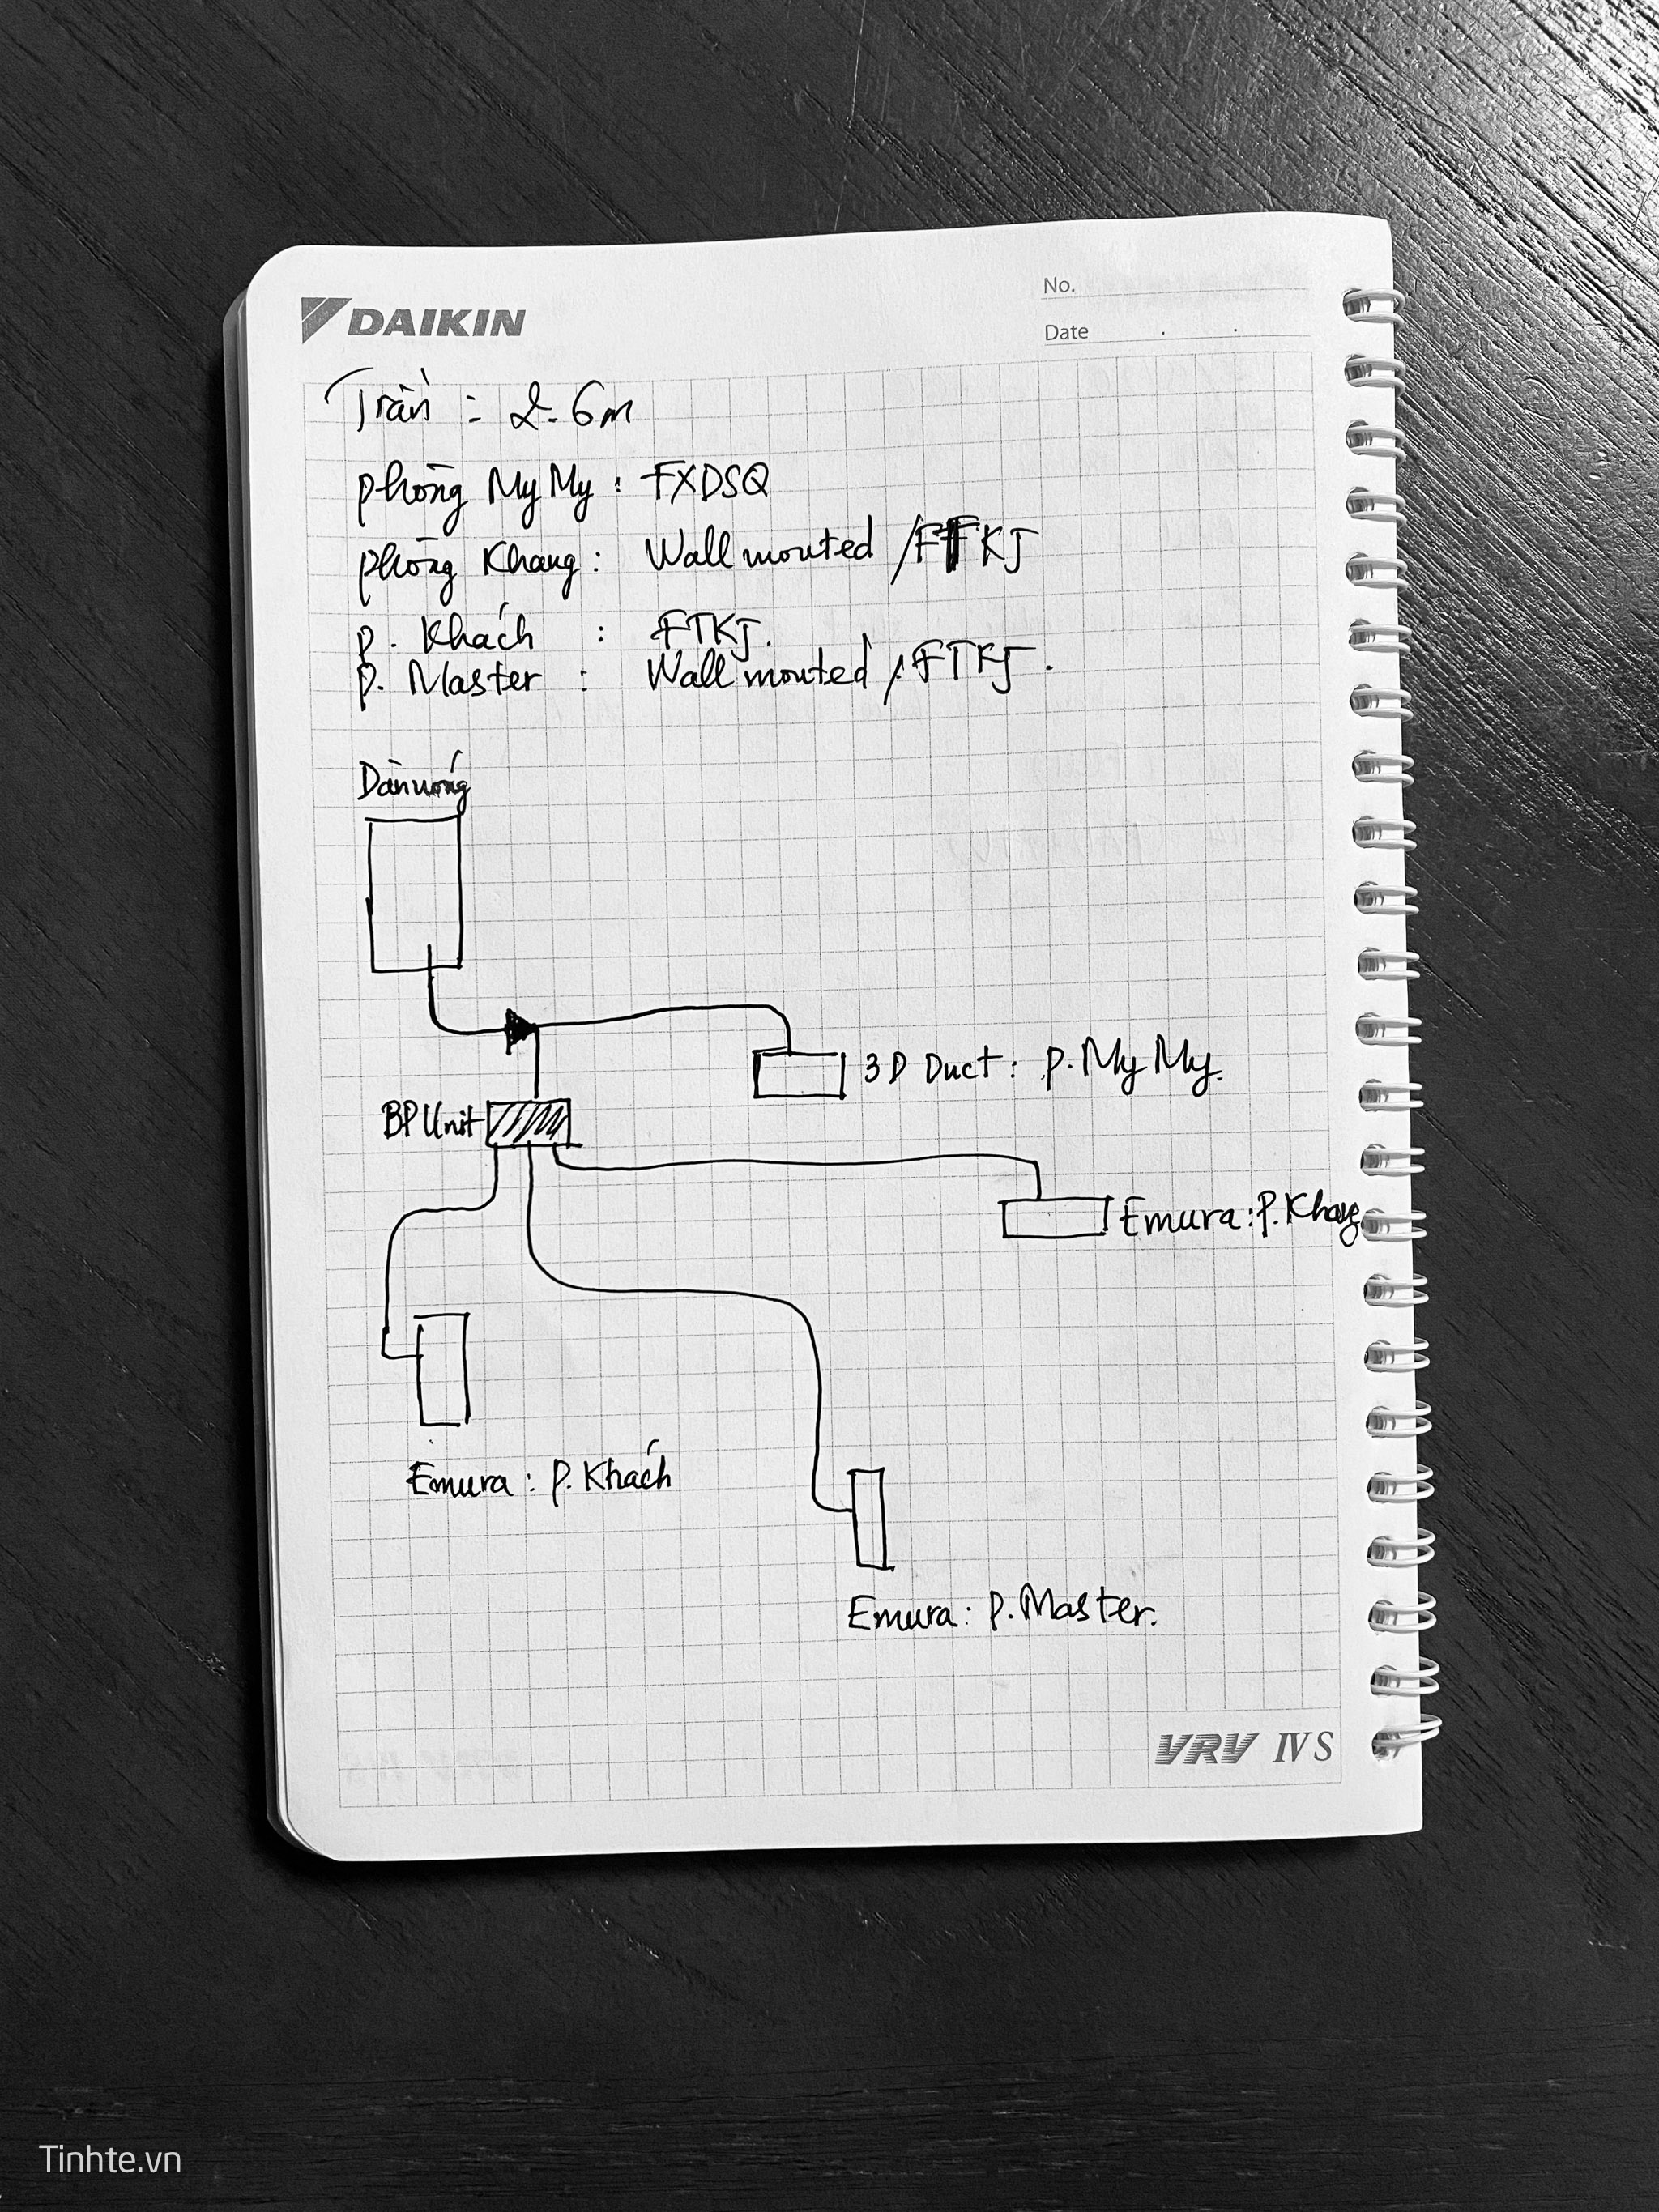 DAIKIN
No.
Date
Trần : 2.6m
phòng My My : FXDSQ
phòng Khang : Wall mouted / FTKJ
p. Khách : FTKJ.
p. Master : Wall mouted / FTKJ.
3D Duct : p. My My.
BP Unit
Emura : p. Khang
Emura : p. Khách
Emura : p. Master.
VRV IV S
Tinhte.vn